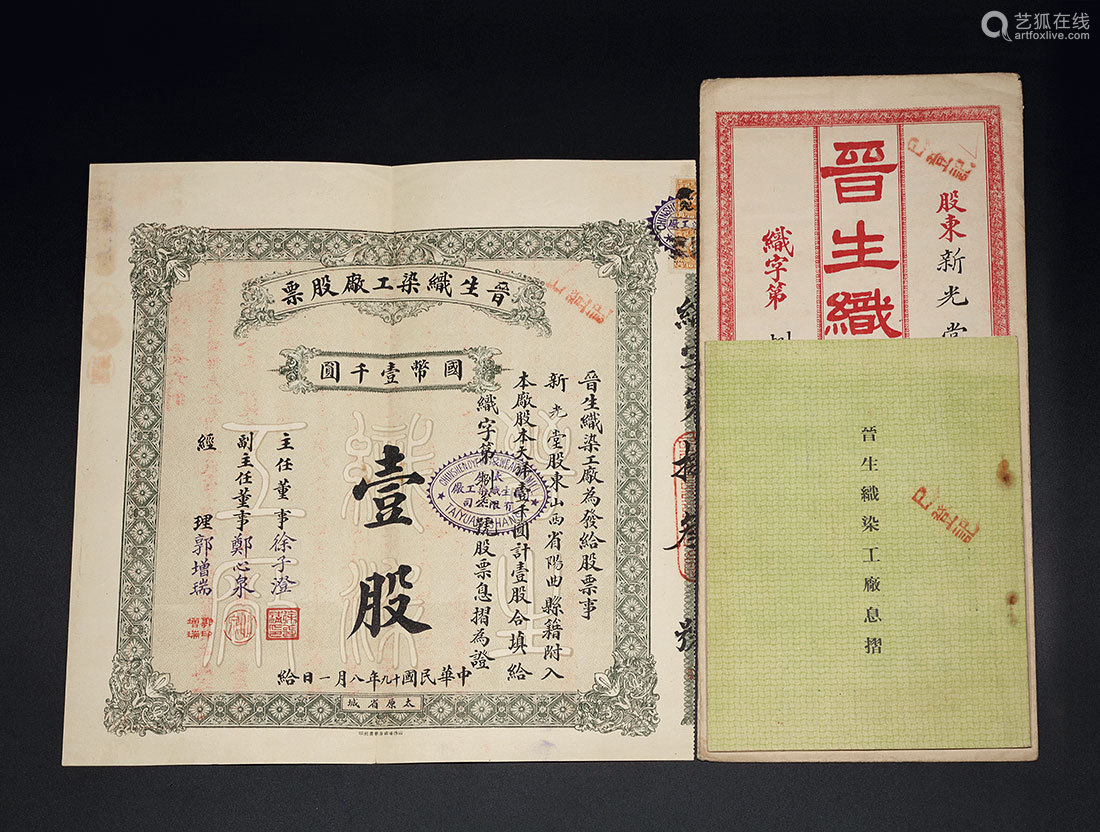 艺狐在线
artfoxlive.com
晉生織染工廠股票
國幣壹千圓
晉生織染工廠為發給股票事
新光堂股東山西省陽曲縣籍附入
本廠股本天洋壹千圓計壹股合填給
織字第 號股票息摺為證
壹股
主任董事徐子澄
副主任董事鄭心泉
經理郭增瑞
中華民國十九年八月一日給
太原省城
TAIYUAN SHANSI
股東新光堂
晉生織
織字第
已登記
晉生織染工廠息摺
已登記